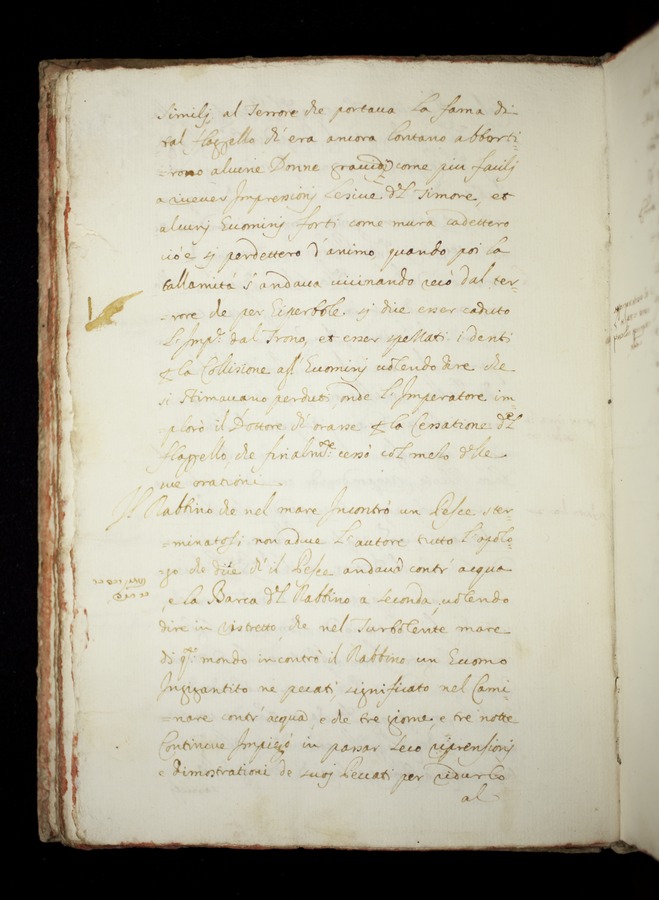 Similj, al Terrore che portaua la fama di
tal flaggello ch'era ancora lontano abborti-
=rono alcune Donne grauide come piu facilj
a riceuer Impressionj lesiue del Timore, et
alcunj Euominj forti come mura cadettero
cioè si perdettero d'animo quando poi la
Callamità s'andaua uicinando cio dal ter-
=rore che per Eiperbole si dice esser caduto
l'Impr. dal Trono, et esser spellati i denti
la Collisione agl Euominj uolendo dire che
si stimauano perduti, onde l'Imperatore im
plorò il Dottore ch'orasse la Cessatione del
flaggello, che finalmte cessò col mezo delle
sue orationi.
Il Rabbino che nel mare Incontrò un Pesce ster-
=minatossi non adue l'autore tutto l'apolo-
go che dice ch'il Pesce andaua contr' acqua
e la Barca del Rabbino a seconda, uolendo
dire in ristretto che nel Turbolente mare
di qto mondo incontrò il Rabbino un Euomo
Ingigantito ne peccati, significato nel Cami-
=nare contr' acqua, e che tre giorni e tre notte
Continue Impiegò in passar seco riprensionj
e Dimostrationi de suoj Peccati per ridurlo
al